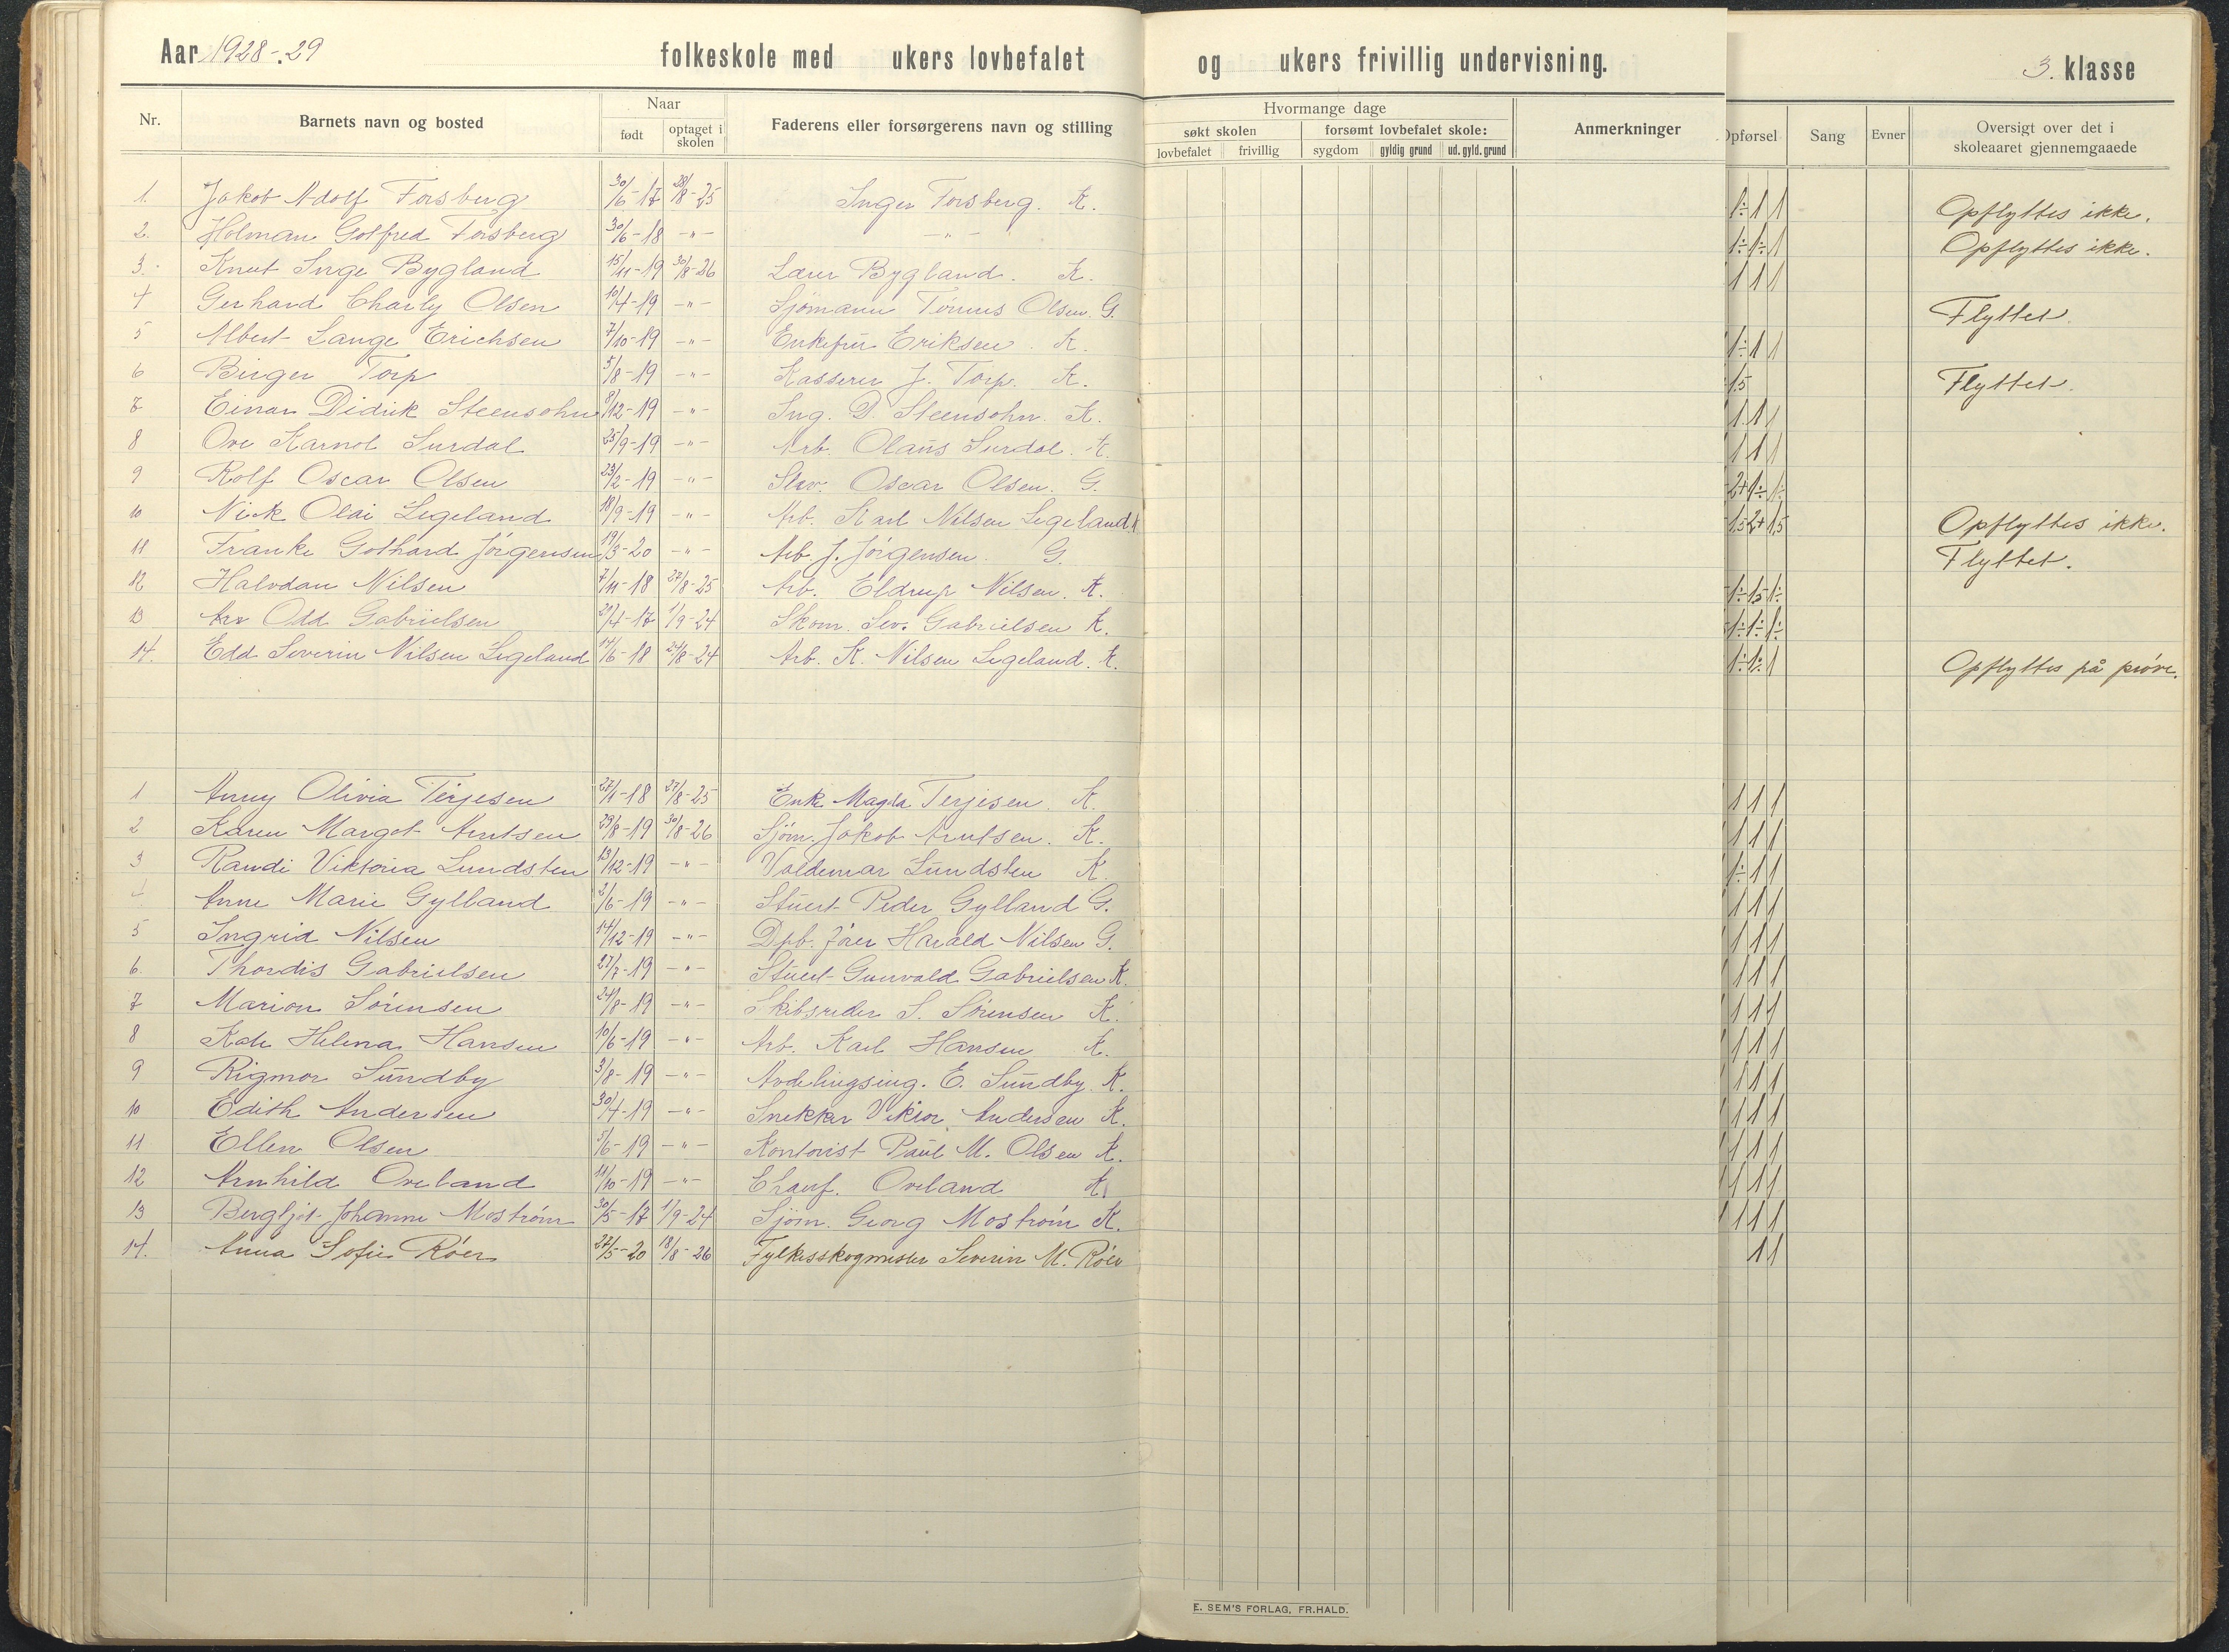 Aar 1928-29 folkeskole med ukers lovbefalet og ukers frivillig undervisning. 3. klasse
Nr. Barnets navn og bosted Naar født optaget i skolen Faderens eller forsørgerens navn og stilling Hvormange dage søkt skolen lovbefalet frivillig forsømt lovbefalet skole: sygdom gyldig grund ud. gyld. grund Anmerkninger Opførsel Sang Evner Oversigt over det i skoleaaret gjennemgaaede
1. Jakob Adolf Forsberg 30/6-17 28/8-25 Inger Forsberg. K. 1÷ 1 1 Opflyttes ikke.
2. Holman Gotfred Forsberg 30/6-18 -"- -"- 1÷ 1÷ 1 Opflyttes ikke.
3. Knut Inge Bygland 15/11-19 30/8-26 Lærer Bygland. K. 1 1 1
4 Gerhard Charly Olsen 10/4-19 -"- Sjømann Tønnes Olsen. G. Flyttet.
5 Albert Lange Erichsen 7/10-19 -"- Enkefru Eriksen. K. 1÷ 1 1
6 Birger Torp 5/8-19 -"- Kasserer J. Torp. K. 1,5 Flyttet.
7 Einar Didrik Steensohn 8/12-19 -"- Ing. D. Steensohn. K. 1 1 1
8 Ove Karnol Surdal 25/9-19 -"- Arb. Olaus Surdal. K. 1 1 1
9 Rolf Oscar Olsen 23/2-19 -"- Oscar Olsen. G. 2+ 1÷ 1÷
10 Nick Olai Legeland 18/9-19 -"- Arb. Karl Nilsen Legeland K 1,5 2+ 1,5 Opflyttes ikke.
11 Franke Gothard Jörgensen 19/3-20 -"- Arb. J. Jörgensen. G. Flyttet.
12 Halvdan Nilsen 7/11-18 27/8-25 Arb. Eldrup Nilsen. K. 1÷ 1,5 1÷
13 Odd Gabrielsen 20/4-17 1/9-24 Skom. Sev. Gabrielsen K. 1÷ 1÷ 1÷
14. Edd Severin Nilsen Legeland 14/6-18 24/8-24 Arb. K. Nilsen Legeland. K. 1÷ 1÷ 1 Opflyttes på prøve.
1 Anny Olivia Terjesen 27/1-18 27/8-25 Enke Magda Terjesen. K. 1 1 1
2 Karen Margot Arntsen 29/8-19 30/8-26 Sjøm. Jakob Arntsen. K. 1 1 1
3 Randi Viktoria Lundsten 13/12-19 -"- Valdemar Lundsten K. 1÷ 1 1
4 Anne Marie Gylland 2/6-19 -"- Stuert Peder Gylland G. 1 1 1
5 Ingrid Nilsen 14/12-19 -"- Harald Nilsen G. 1 1 1
6. Thordis Gabrielsen 27/7-19 -"- Stuert Gunvald Gabrielsen K. 1 1 1
7 Marion Sørensen 24/8-19 -"- Skibsreder S. Sørensen K. 1 1 1
8 Helena Hansen 10/6-19 -"- Arb. Karl Hansen K. 1 1 1
9 Rigmor Sundby 3/8-19 -"- Avdelingsing. E. Sundby K. 1 1 1
10 Edith Andersen 30/4-19 -"- Snekker Viktor Andersen K. 1 1 1
11 Ellen Olsen 5/6-19 -"- Kontorist Paul M. Olsen K. 1 1 1
12 Arnhild Oveland 11/10-19 -"- Chauf. Oveland K. 1 1 1
13 Bergljot Johanne Moström 30/5-17 1/9-24 Sjøm. Georg Moström K. 1 1 1
14. Anna Sofie Röer 27/5-20 18/8-26 Fylkesskogmester Severin M. Röer 1 1
E. SEM'S FORLAG, FR.HALD.